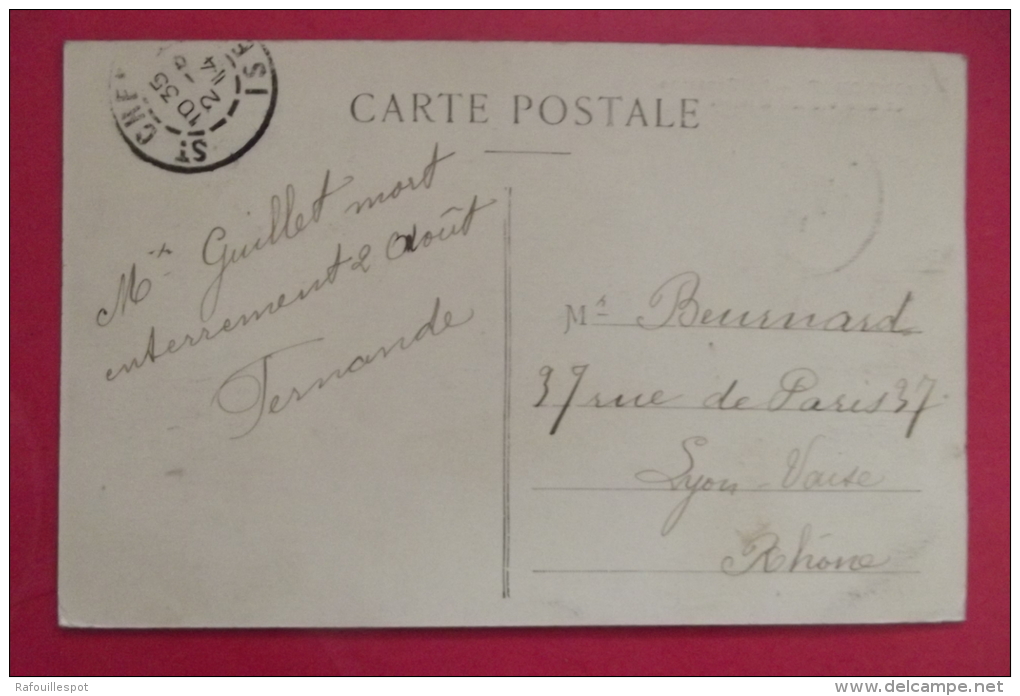 CARTE POSTALE
Mr Guillet mort
enterrement 2 Août
Fernande
Mr Beurnard
37 rue de Paris 37
Lyon-Vaise
Rhône
10 35
2 -8
14
ISE
Rafouillespot
www.delcampe.net